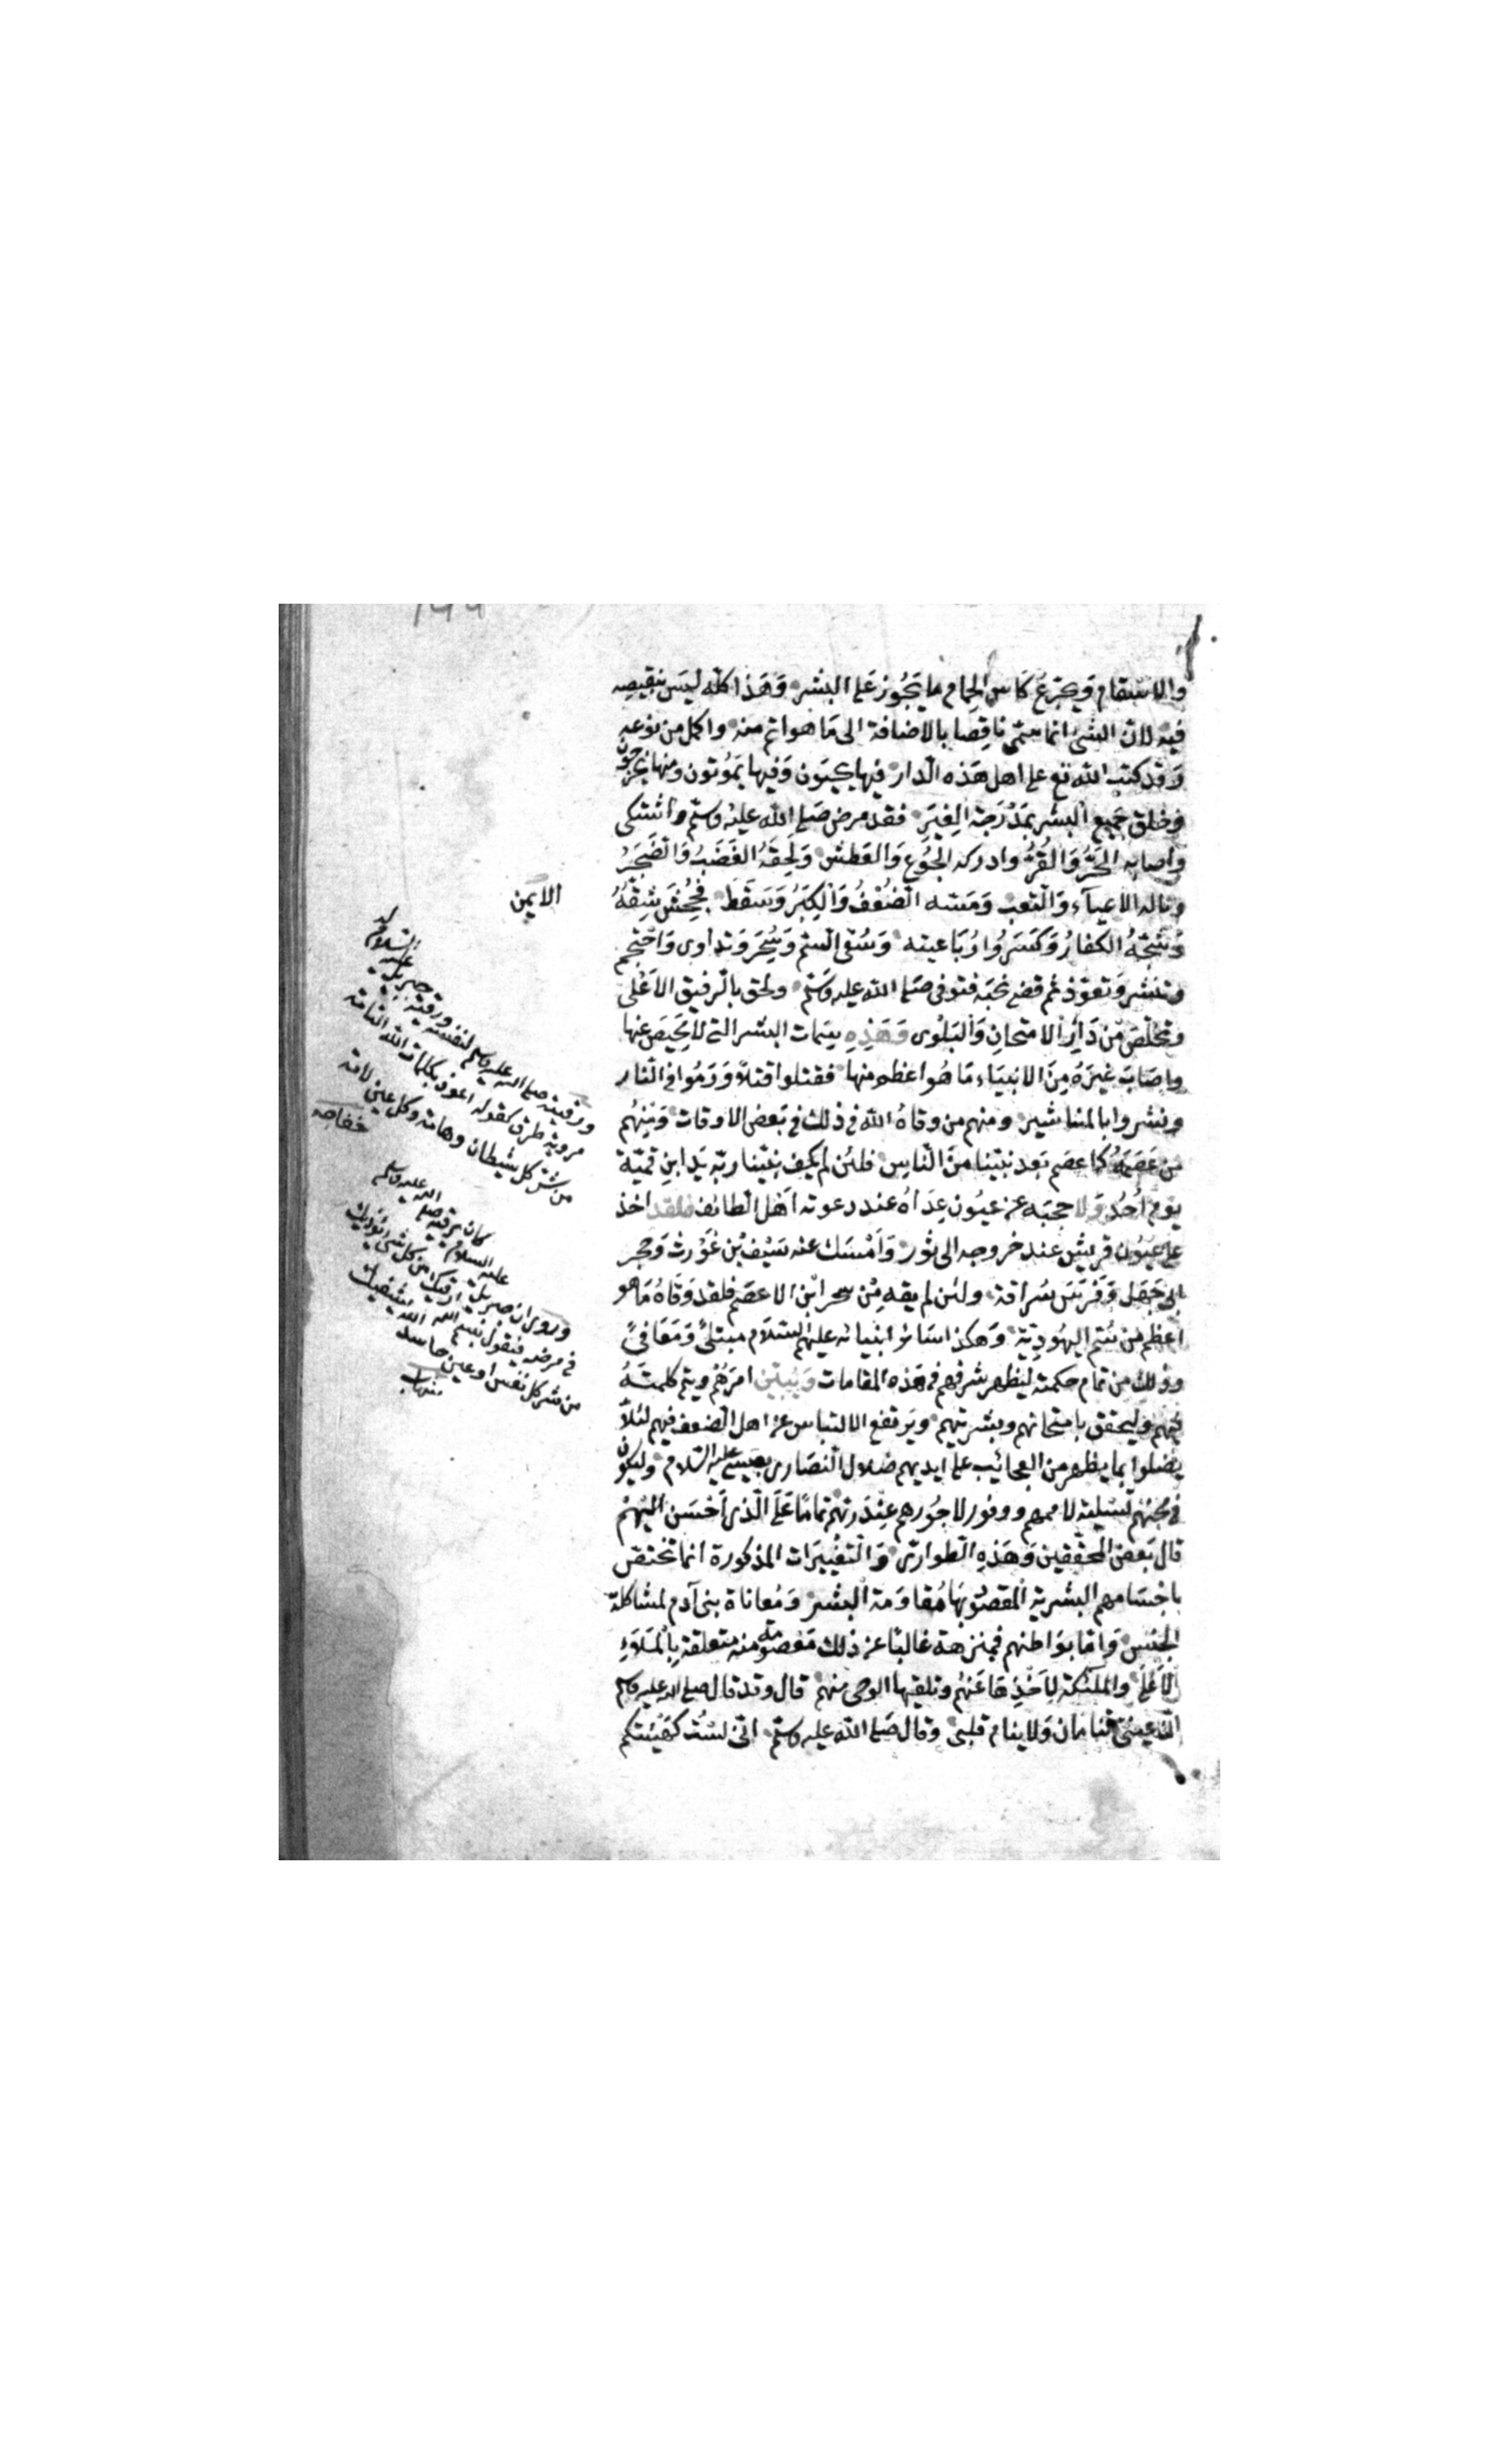 والاسقام وتجرّع كاس الحمام ما يَجُوز عَلى البشر وَهَذا كلّه ليسَ بنقيصه
فيه لان الشئ انما يسمّى ناقِصا بالاضافة الى مَا هو اتم منه واكمل من نوعه
وَقد كتب الله تع على اهل هَذه الدار فيها يحيَون وَفيها يَموُتون ومنها يخرجون
وخلق جَميع البشر بمَدْرَجة الغِيَر فقد مرض صَلى الله عليه وسلّم واشتكى
واصابه الحَرُّ وَالقُرُّ وادركه الجُوُع وَالعَطش وَلَحِقَهُ الغَضَبُ وَالضَجَرُ
وناله الاعياء وَالتعب وَمَسّه الضُعْفُ وَالكِبَرُ وَسَقَط فجُحِشَ شِقّهُ
الايمن
وَشَجّهُ الكفارُ وَكَسَرُوا رُبَاعيته وَسُقى السّم وَسُحِرَ وَتداوى وَاحْتجم
وتنشر وَتعوّذ ثم قضى نحبَه فتوفى صَلى الله عليه وسلّم ولحق بالرفيق الاَعْلى
وتخلّصَ مِن دَارِ الامتحانِ وَالبَلْوى وَهَذِهِ سِمَات البشر التى لا مَحِيَصَ عنها
واصَابَ غيَرَهُ مِنَ الانبيَاء مَا هُو اعظم منها فقتلوا قتلاً وَرَمُوا فى النار
ونشروا بالمناشير ومنهم من وقاهُ الله فى ذلك فى بَعض الاوقات وَمِنهُم
من عَصَمَهُ كما عصم بَعد نبيّنا منَ النَاس فلئن لم يكف نبيّنا ربّه يَد ابنِ قميّة
يوم اُحُد وَلا حجبَه عن عيُون عِدَاهُ عند دعوته اَهْل الطائف فلقد اخذ
على عيُون قريش عند خروجه الى ثور وَاَمْسَك عنه سَيْف بْن غَوْرث وَحجر
ابى جَهَل وَفرَسَ سُراقة ولئن لم يقه مِن سحر ابْن الاعصَم فلقد وَقاهُ مَا هو
اعظم من سُمّ اليهُوديّة وَهكذا سَائر انبيائه عليهم السّلام مبتلىً وَمَعَافىً
وذلك من تمام حكمته ليُظهر شرفهم فى هَذه المقامات وَيُبيّن امرَهُم ويتم كلمتَهُ
فيهم وليحقق بامتحانهم وبشريتهم ويَرتفع الالتباس عن اهل الضعف فيهم لئلاّ
يَضلوا بما يظهر من العجائب على ايديهم ضلال النصَارى بعيسى عليه السّلام وليكون
فى محَنِهُم تسليَة لاممهم ووفور لاجُورهم عِنْدَ رَبهم تمامًا عَلَى الّذى اَحْسَن اليهُمْ
قال بَعض المحقّقين وَهَذِهِ الطوارئ وَالتغْييرَات المذكورة انما تختصّ
باجْسَامهم البشرية المقصوُد بهَا مُقاوَمة البشر وَمُعاناة بنى آدم لمشاكلة
الجنس وَامّا بوَاطنهم فمنزهة غالبًا عن ذلك مَعصوُمة منه متعلقة بِالمَلاَءِ
الاَعْلَى والملئكة لِاَخْذِهَا عَنهُم وتلقيها الوحى منهم قال وقد قال صلى الله عليه وسلم
انّ عينىّ تنامان وَلا ينام قلبى وقال صَلى الله عليه وسلّم انّى لسْت كهَيْئتكم
ورقيته صلى الله عليه وسلم لنفسه ورقية جبريل عليه السّلام له
مروية من طرق كقوله اعوذ بكلمات الله التامة
من شر كل شيطان وهامة وكل عين لامة
خفاجى
وروى ان جبريل عليه السلام كان يرقيه صلى الله عليه وسلم
فى مرضه فيقول بسم الله ارقيك من كل شئ يؤذيك
من شر كل نفس او عين حاسد الله يشفيك
شهاب